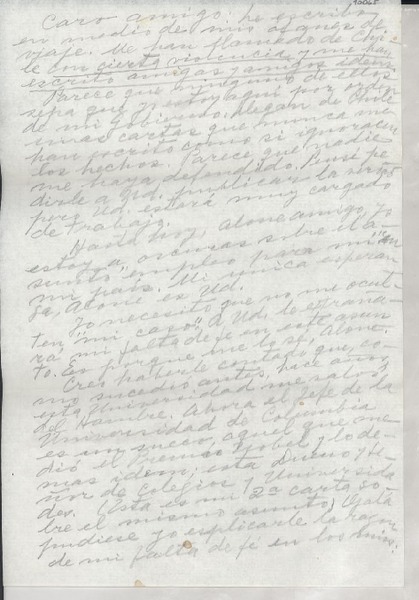 10065
Caro amigo: he escribo
en medio de mis ajues de
viaje. Me han llamado de Chi-
le con cierta violencia y me han
escrito amigas y amigos idem.
Parece que ninguno de ellos
sepa que yo estoy aquí por orden
de mi Gobierno. Llegan de Chile
unas cartas que nunca me
han escrito como si ignorasen
los hechos. Parece que nadie
me haya defendido. Pensé pe-
dirle a Ud. publicar la verdad
pero Ud. estará muy cargado
de trabajo.
Hasta hoy, Alone amigo, yo
estoy a oscuras sobre el a-
sunto, empleo para mí "en
mi país". Mi única esperan-
za, Alone es Ud.
Yo necesito que no me ocul-
ten "mi caso". A Ud. le extraña-
rá mi falta de fe en este asun-
to. Es porque me lo sé, Alone.
Creo haberle contado que, co-
mo sucedió antes, hace años,
esta Universidad me salvó
del Hambre. Ahora el Jefe de la
Universidad de Columbia
es un sueco, aquel que me
dió el Premio Nobel y lo de-
más idem; está dueño y se-
ñor de Colegios y Universida-
des. (Esta es mi 2a carta so-
bre el mismo asunto) Ojalá
pudiese yo explicarle la razón
de mi falta de fe en los míos.